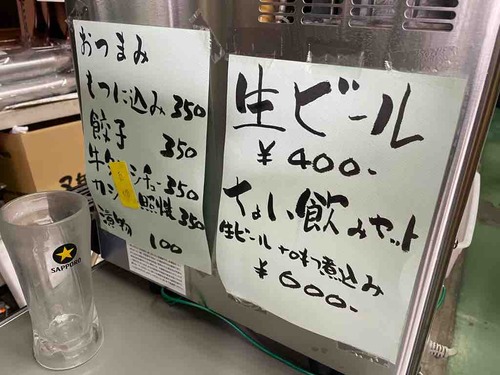 おつまみ
もつに込み 350
餃子 350
牛タンシチュー 350
カシラ照焼 350
漬物 100
生ビール
¥400-
ちょい飲みセット
生ビール+もつ煮込み
¥600-
SAPPORO